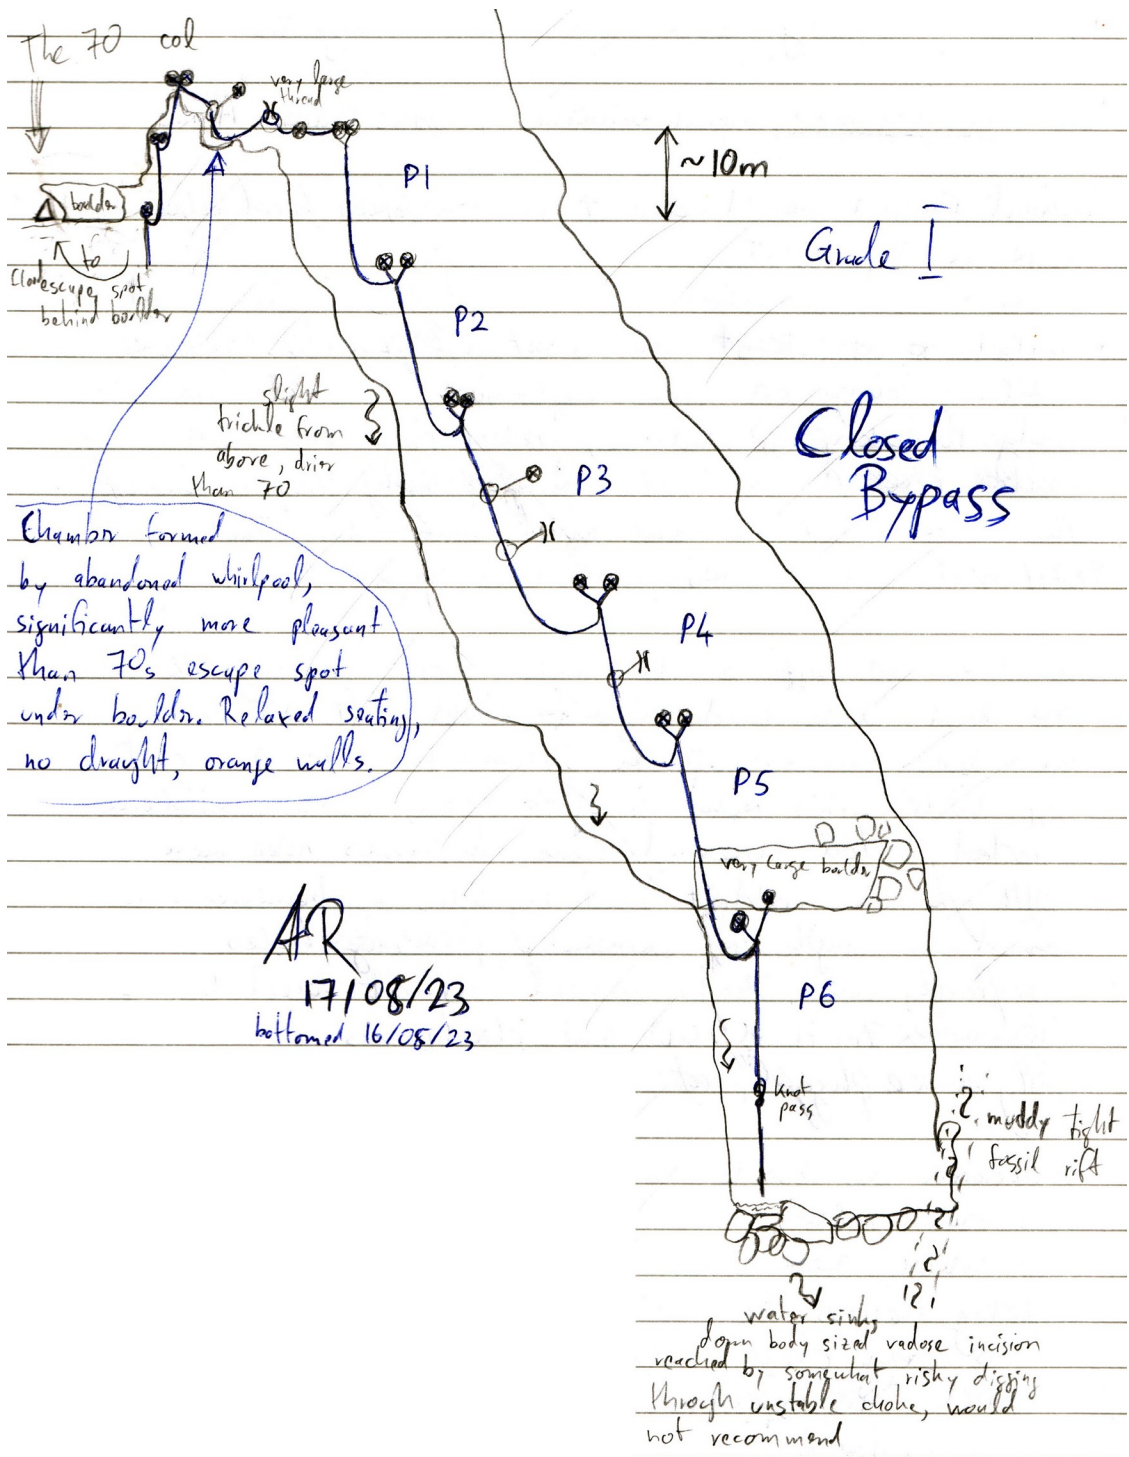 The 70 col
very large
thread
P1
~10m
boulder
to
escape spot
behind boulder
Grade I
P2
slight
trickle from
above, drier
than 70
Closed
Bypass
P3
Chamber formed
by abandoned whirlpool,
significantly more pleasant
than 70s escape spot
under boulder. Relaxed seating,
no draught, orange walls.
P4
P5
very large boulder
AR
17/08/23
bottomed 16/08/23
P6
knot
pass
muddy tight
fossil rift
water sinks
down body sized vadose incision
reached by somewhat risky digging
through unstable choke, would
not recommend